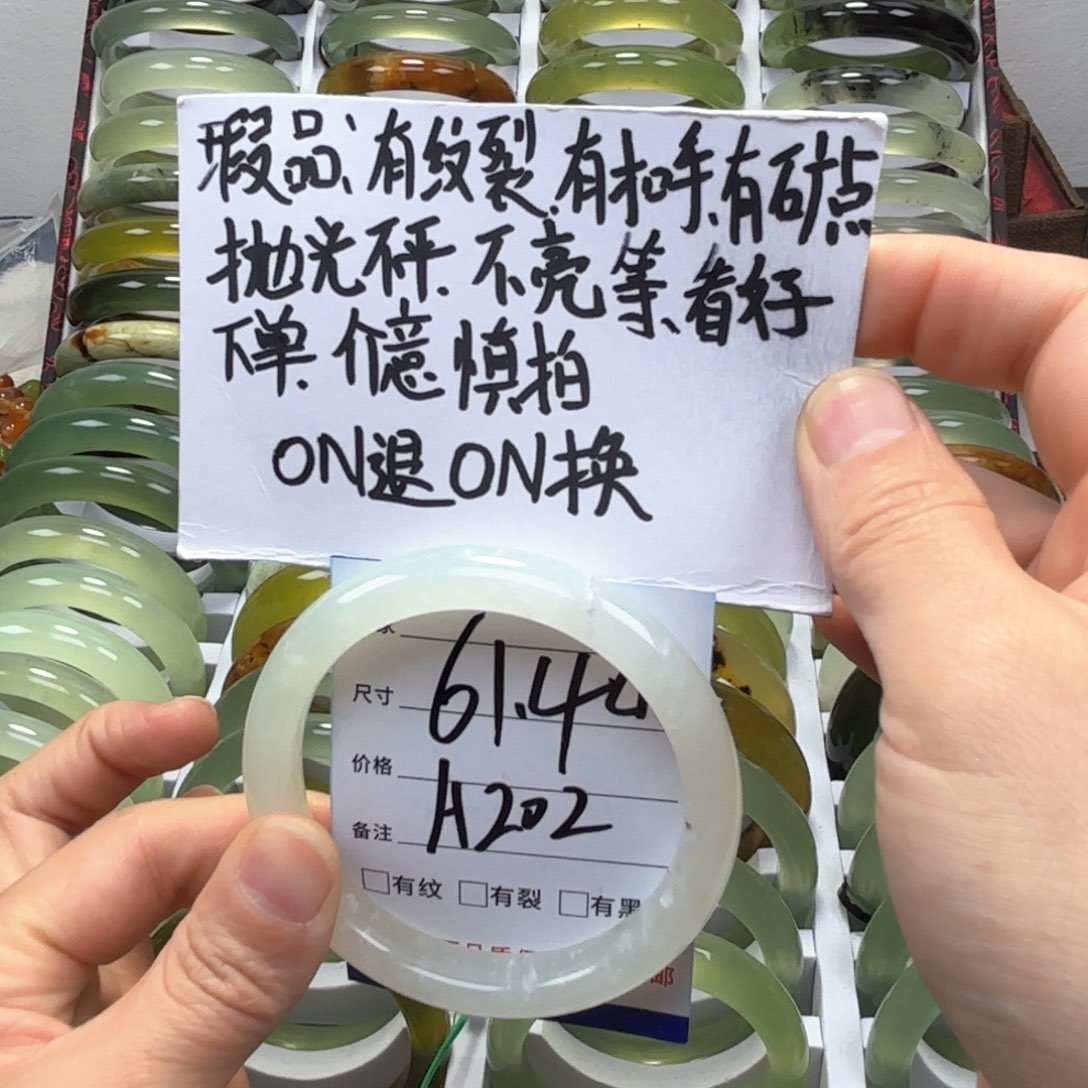 瑕品、有纹裂、有扣手、有矿点
抛光砰、不亮等、看好
下单、介意慎拍
ON退ON换
尺寸 61.4
价格
备注 A202
□有纹 □有裂 □有黑